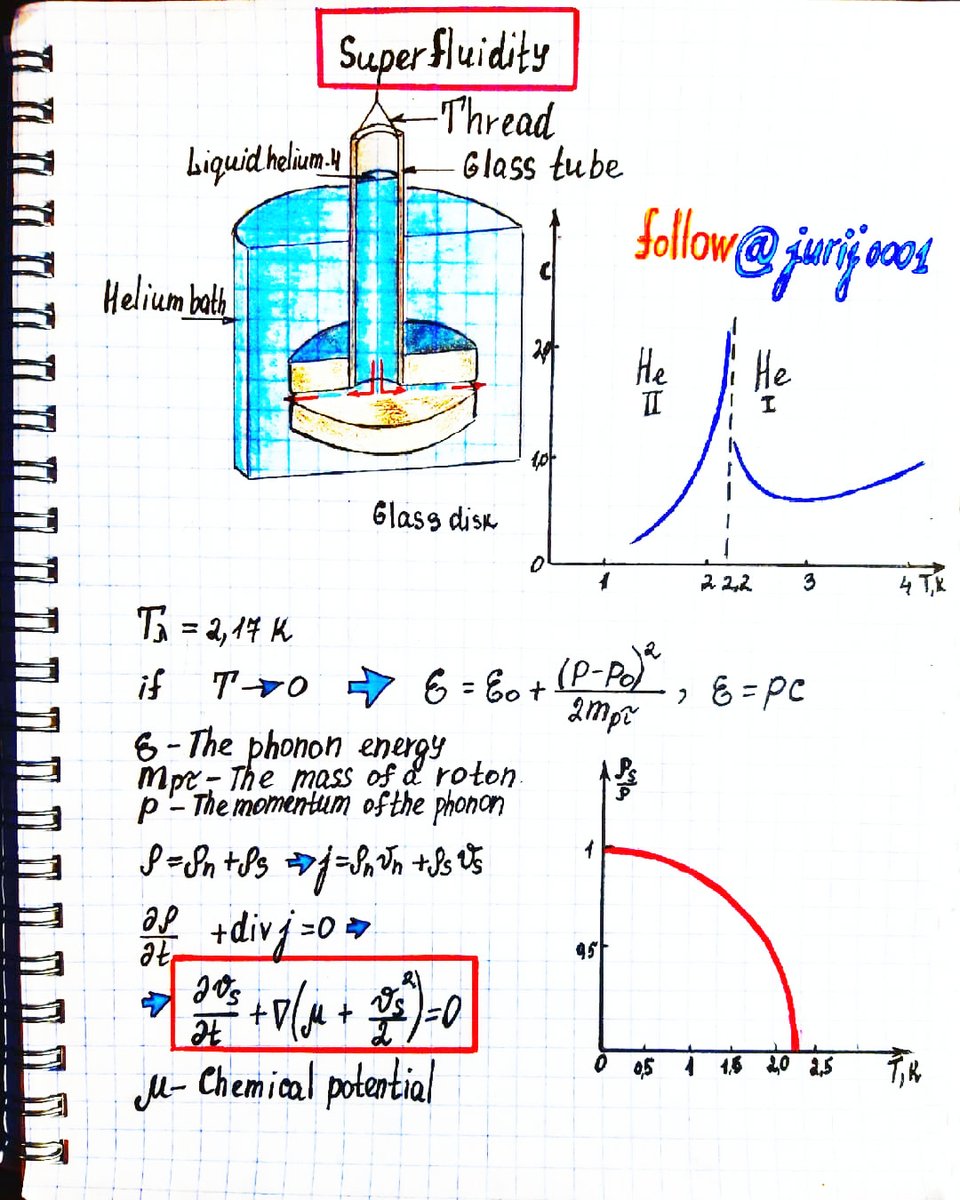 Superfluidity
Thread
Liquid helium-4
Glass tube
Helium bath
Glass disk
follow @jurij0001
C
20
1,0
0
He
II
He
I
1 2 2,2 3 4 T,K
Tλ = 2,17 K
if T → 0 ➡ ε = ε₀ + (p-p₀)²/2mpτ , ε = pc
ε - The phonon energy
mpτ - The mass of a roton
p - The momentum of the phonon
ρ = ρn + ρs ➡ j = ρn vn + ρs vs
∂ρ/∂t + div j = 0 ➡
➡ ∂vs/∂t + ∇(μ + vs²/2) = 0
μ - Chemical potential
ρs/ρ
1
0,5
0 0,5 1 1,5 2,0 2,5 T,K